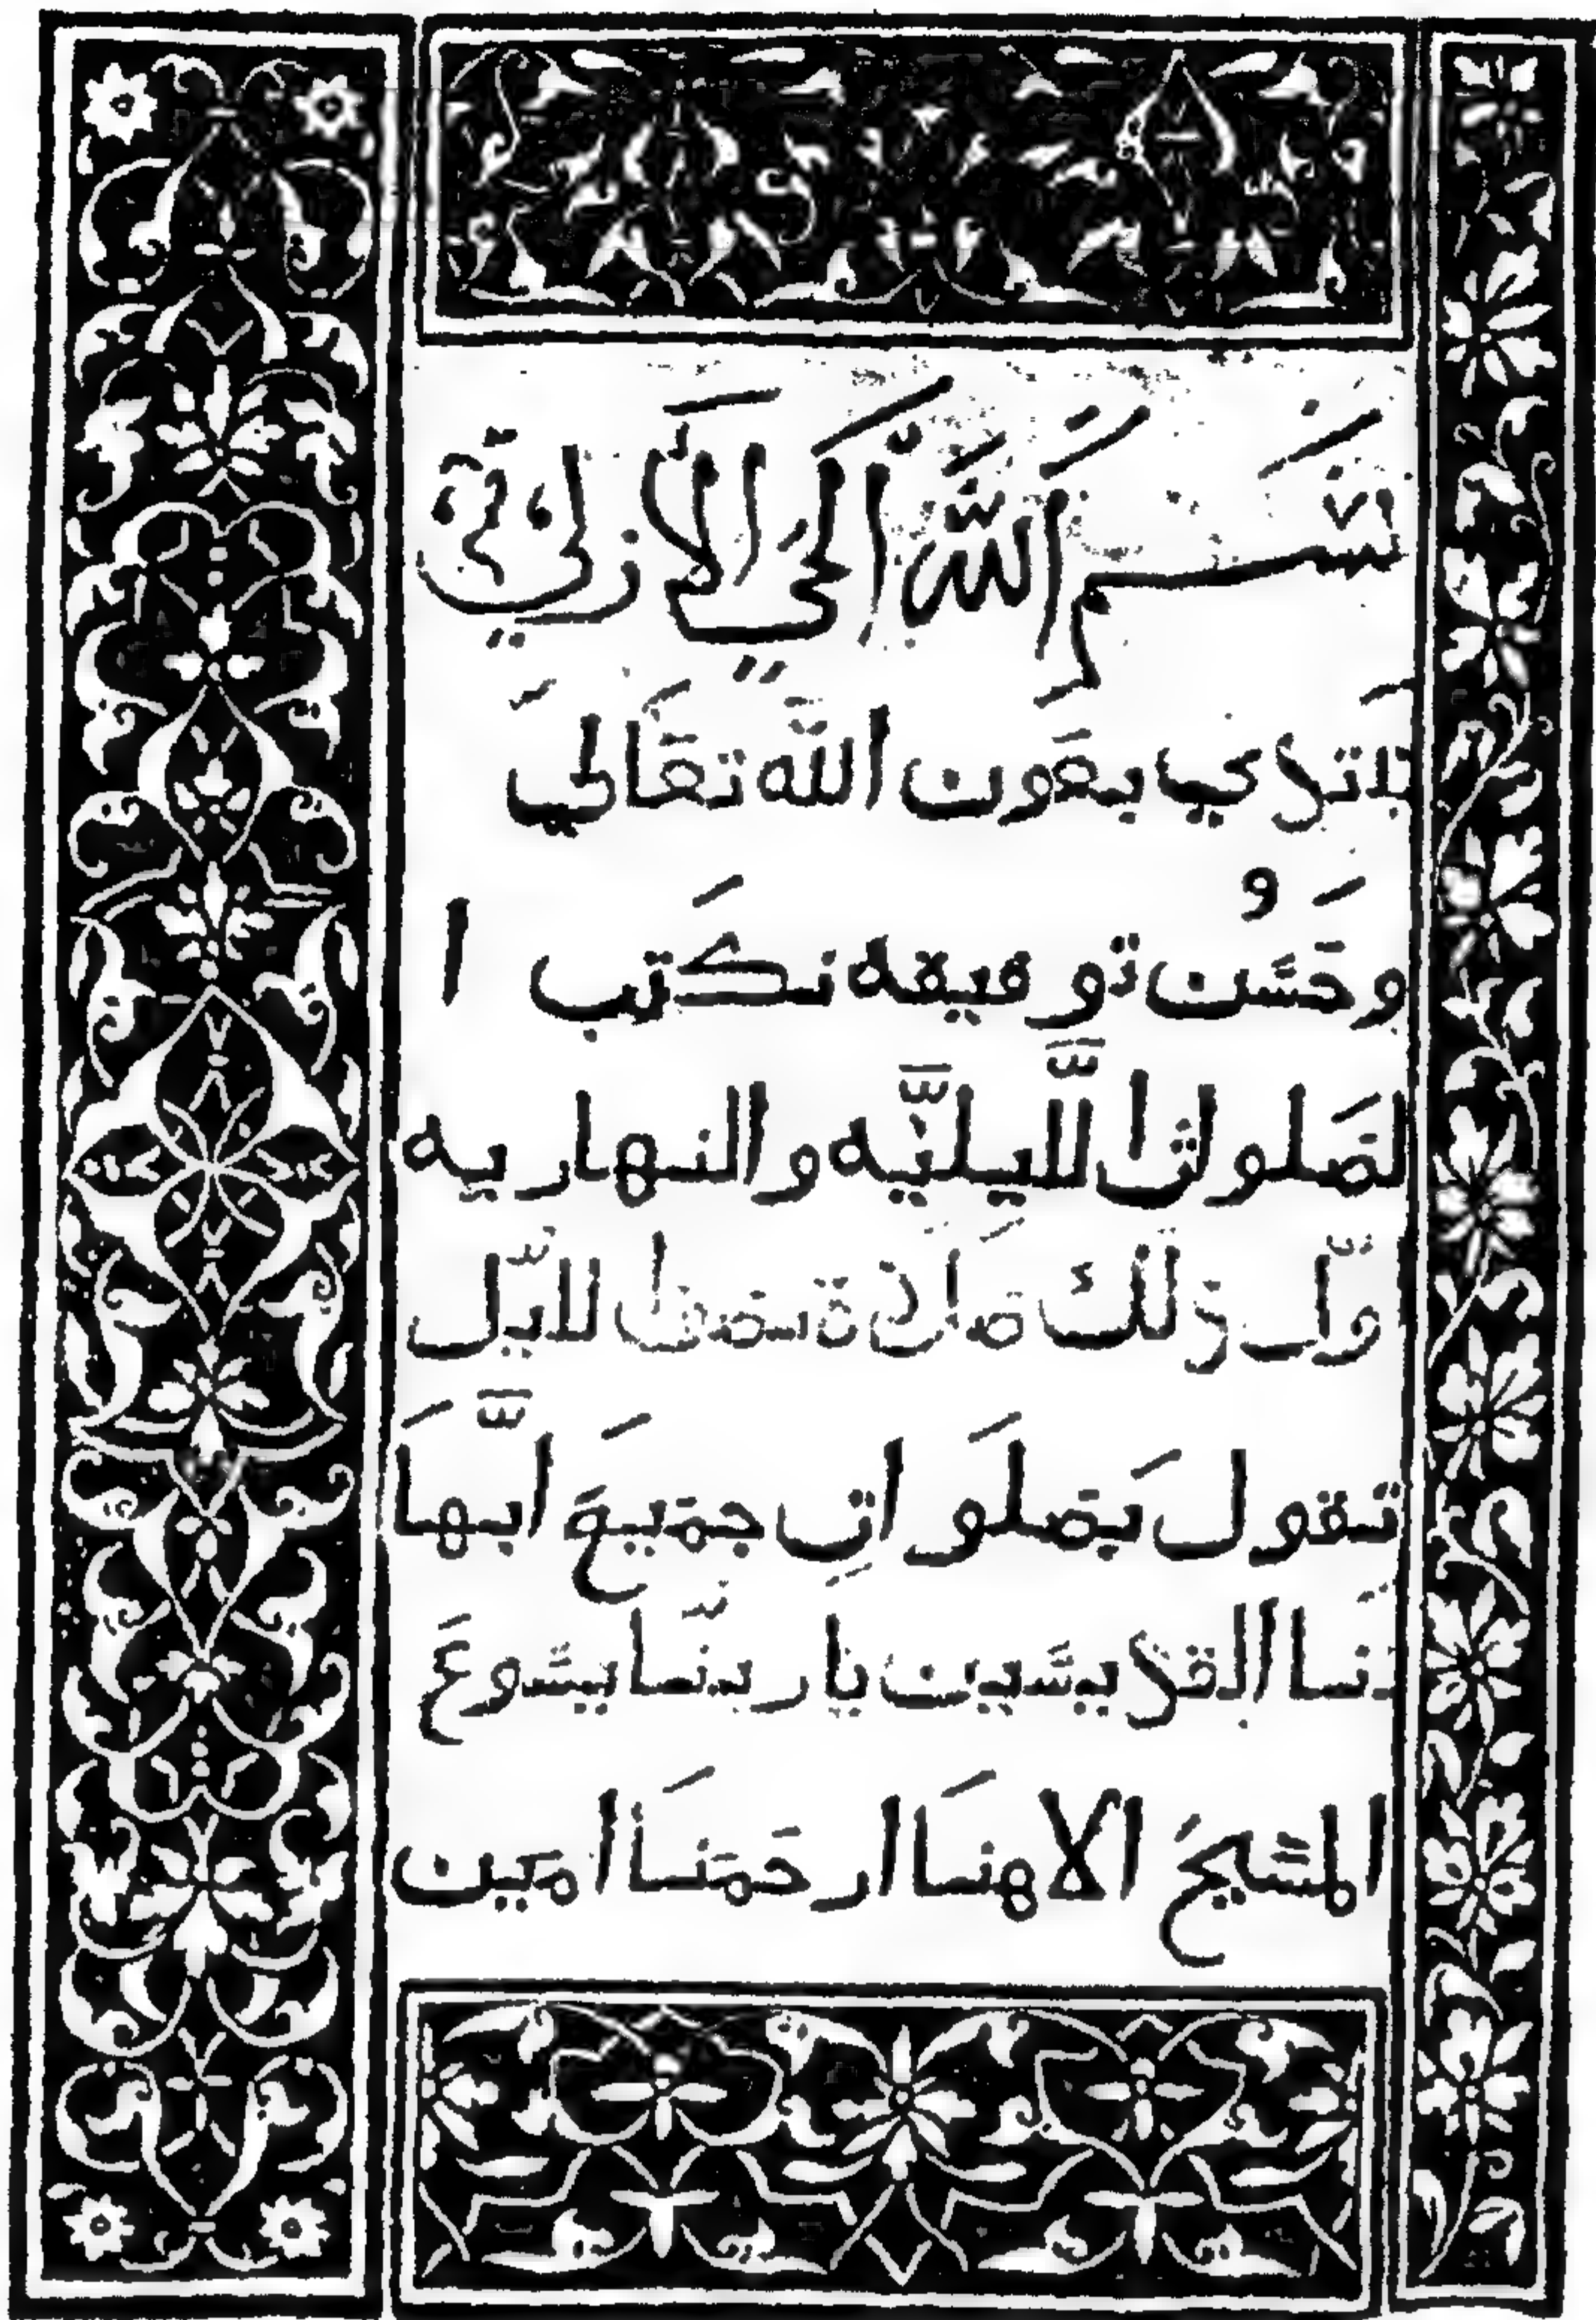 بسم الله الحي الازلي
نبتدي بعون الله تعالي
وحسن توفيقه نكتب ا
لصلواة الليليه والنهاريه
اول ذلك صلاة نصف الليل
تقول بصلوات جميع ابها
تنا القديسين يا ربنا يسوع
المسيح الاهنا ارحمنا امين